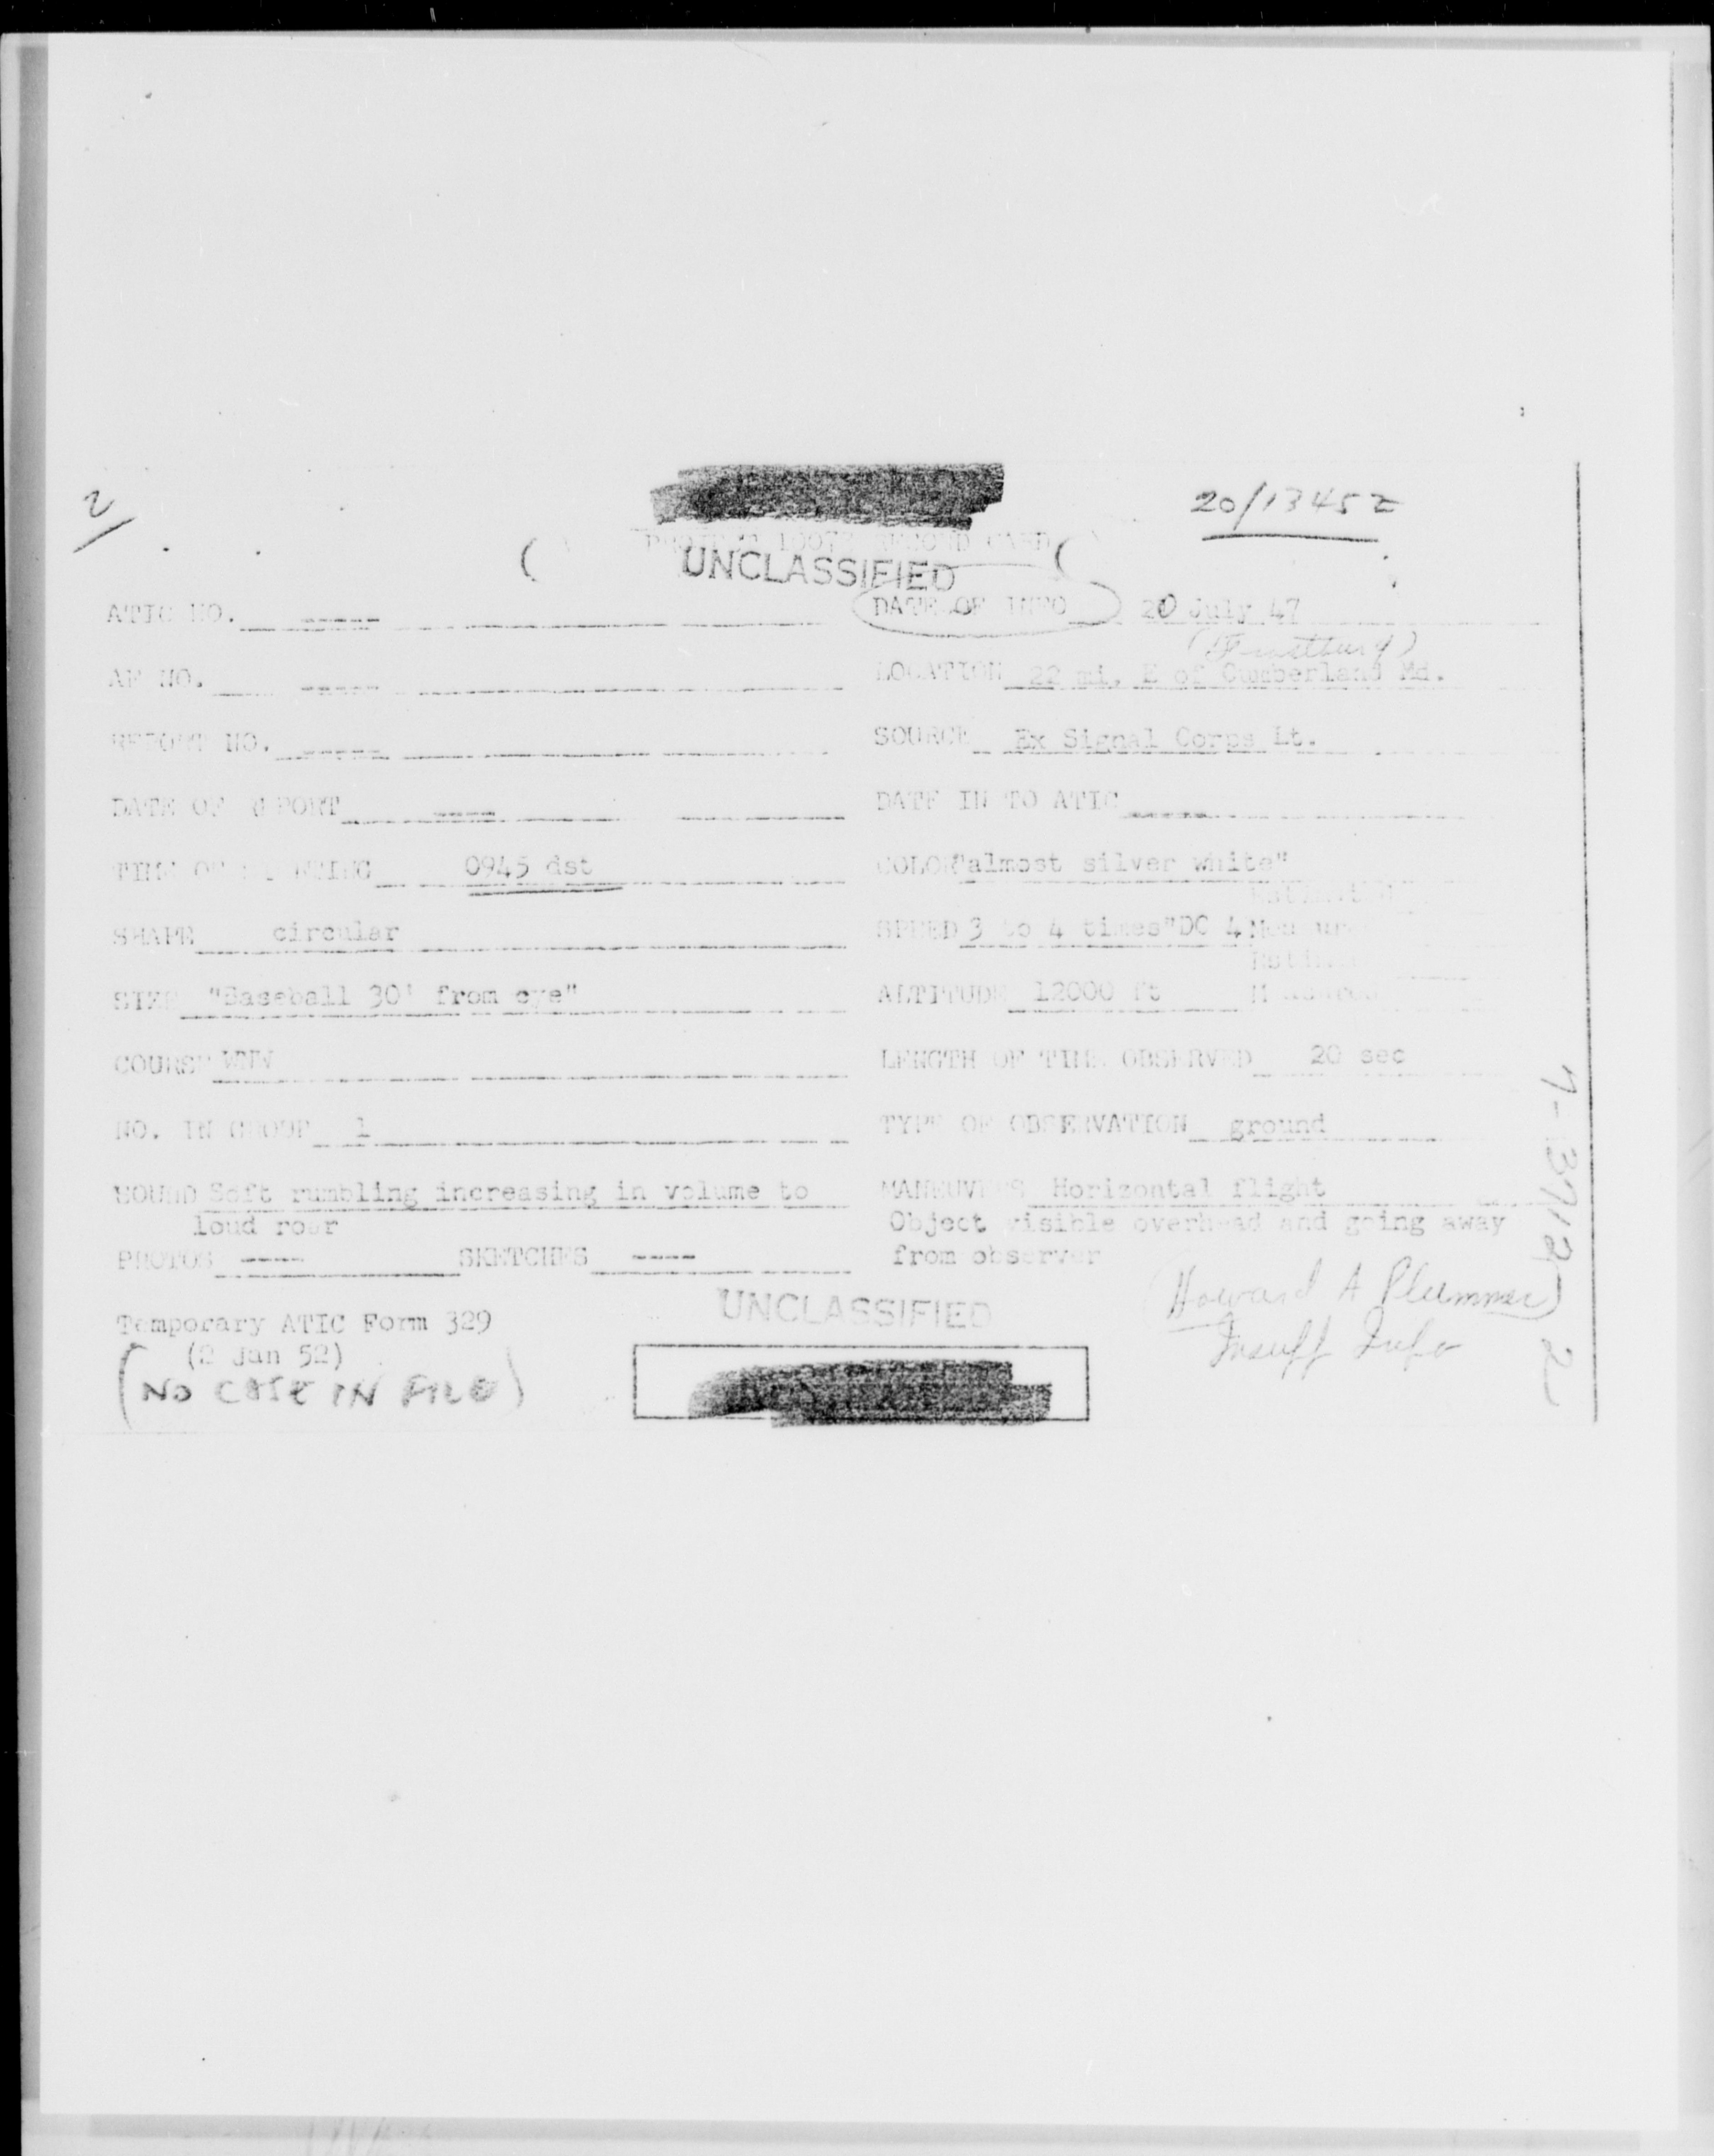 2
20/1345Z
PROJECT 10073 RECORD CARD
UNCLASSIFIED
ATIC NO. ----
DATE OF INFO 20 July 47
(Frostburg)
AF NO. ----
LOCATION 22 mi, E of Cumberland Md.
REPORT NO. ----
SOURCE Ex Signal Corps Lt.
DATE OF REPORT ----
DATE IN TO ATIC ----
TIME OF SIGHTING 0945 dst
COLOR "almost silver white"
SHAPE circular
SPEED 3 to 4 times "DC 4
SIZE "Baseball 30' from eye"
ALTITUDE 12000 ft
COURSE WNW
LENGTH OF TIME OBSERVED 20 sec
NO. IN GROUP 1
TYPE OF OBSERVATION ground
SOUND Soft rumbling increasing in volume to
loud roar
MANEUVERS Horizontal flight
Object visible overhead and going away
from observer
PHOTOS ---- SKETCHES ----
(Howard A Plummer)
Insuff Info
UNCLASSIFIED
Temporary ATIC Form 329
(2 Jan 52)
(NO CASE IN FILE)
7-3712-2